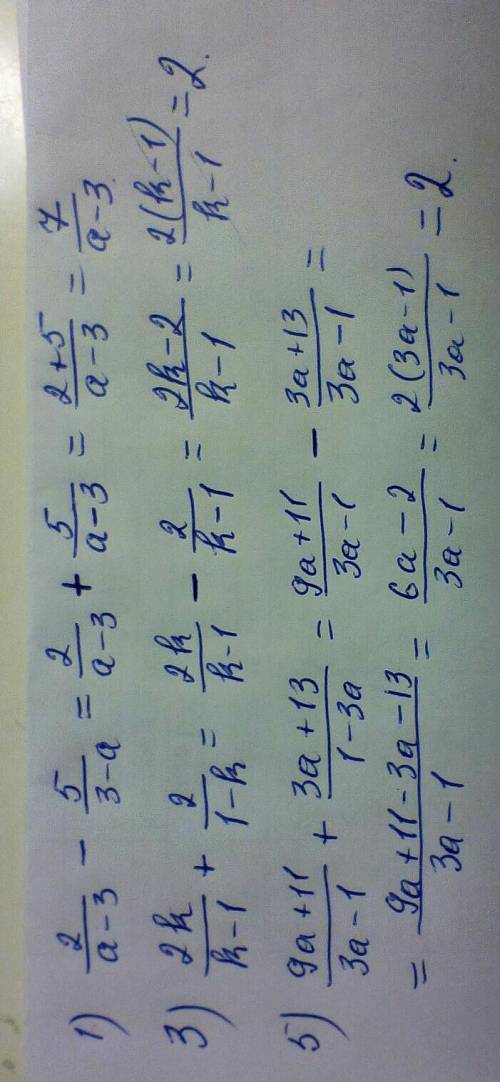 1) 2/(a-3) - 5/(3-a) = 2/(a-3) + 5/(a-3) = (2+5)/(a-3) = 7/(a-3).
3) 2k/(k-1) + 2/(1-k) = 2k/(k-1) - 2/(k-1) = (2k-2)/(k-1) = 2(k-1)/(k-1) = 2.
5) (9a+11)/(3a-1) + (3a+13)/(1-3a) = (9a+11)/(3a-1) - (3a+13)/(3a-1) =
= (9a+11-3a-13)/(3a-1) = (6a-2)/(3a-1) = 2(3a-1)/(3a-1) = 2.